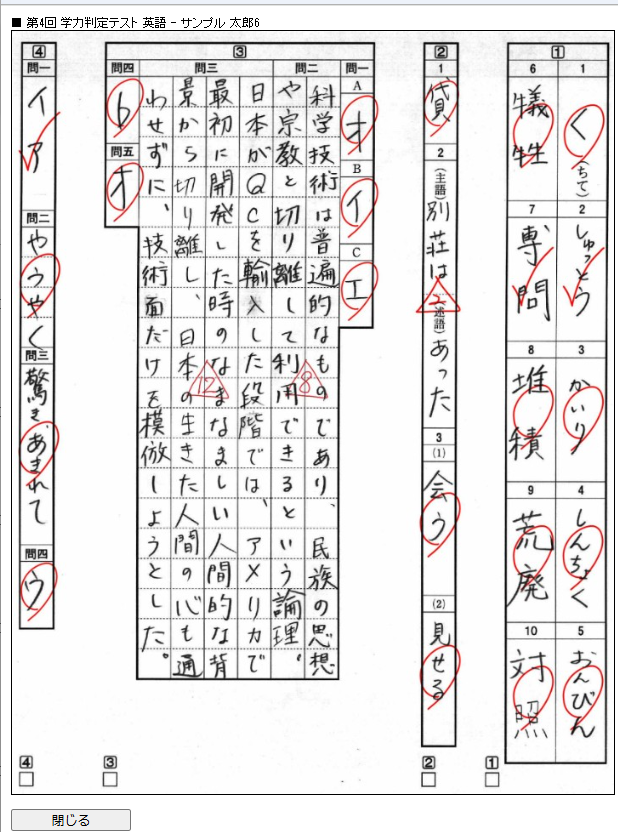 ■ 第4回 学力判定テスト 英語 - サンプル 太郎6
1
1
く(ちて)
2
しゅっとう
3
かいり
4
しんちょく
5
おんびん
6
犠牲
7
専問
8
堆積
9
荒廃
10
対照
2
1
貸
2
(主語)別荘は
2
(述語)あった
3
(1)
会う
(2)
見せる
3
問一
A
オ
B
イ
C
エ
問二
科学技術は普遍的なものであり、民族の思想
や宗教と切り離して利用できるという論理。
8
問三
日本がQCを輸入した段階では、アメリカで
最初に開発した時のなまなましい人間的な背
景から切り離し、日本の生きた人間の心も通
わせずに、技術面だけを模倣しようとした。
12
問四
6
問五
オ
4
問一
イ ア
問二
やうやく
問三
驚きあきれて
問四
ウ
4
3
2
1
閉じる